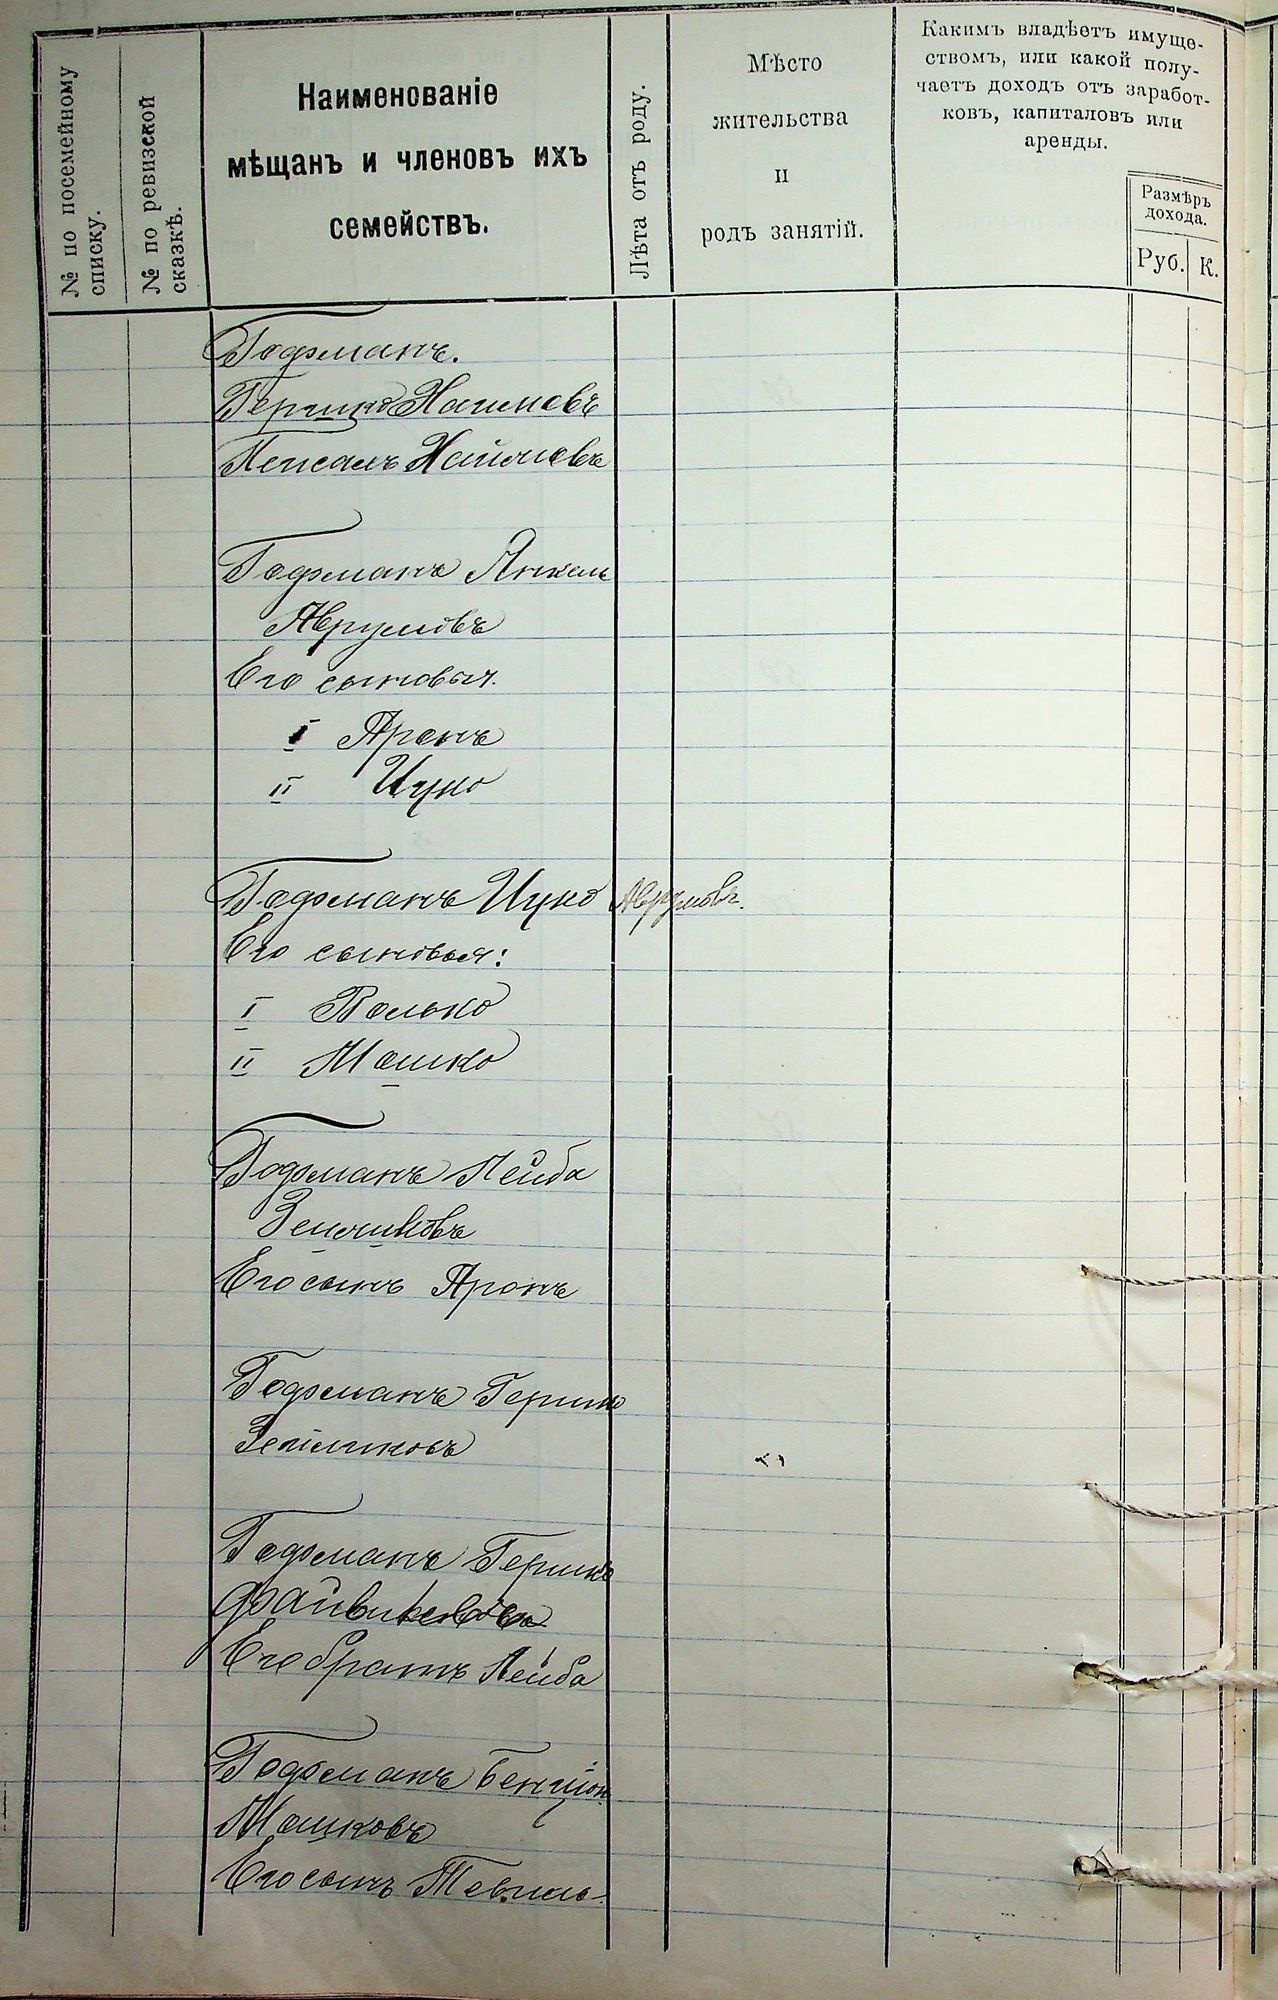 № по посемейному
списку.
№ по ревизской
сказкѣ.
Наименованіе
мѣщанъ и членовъ ихъ
семействъ.
Лѣта отъ роду.
Мѣсто
жительства
и
родъ занятій.
Какимъ владѣетъ имуще-
ствомъ, или какой полу-
чаетъ доходъ отъ заработ-
ковъ, капиталовъ или
аренды.
Размѣръ
дохода.
Руб. К.
Гофманъ.
Гершко
Гофманъ Янкель
Аврумовъ
Его сыновья.
I Аронъ
II Ицко
Гофманъ Ицко Аврумовъ.
Его сыновья:
I Волько
II Мошко
Гофманъ Лейба
Зейликовъ
Его сынъ Аронъ
Гофманъ Гершко
Зейликовъ
Гофманъ Гершко
Файвишовъ
Его братъ Лейба
Гофманъ Бенціон
Мошковъ
Его сынъ Тевель.